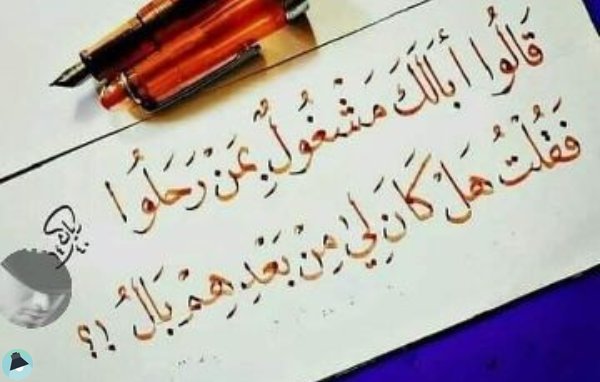 قَالُوا أبَالَكَ مَشْغُولٌ بِمَنْ رَحَلُوا
فَقُلْتُ هَلْ كَانَ لِي مِنْ بَعْدِهِمْ بَالُ !؟